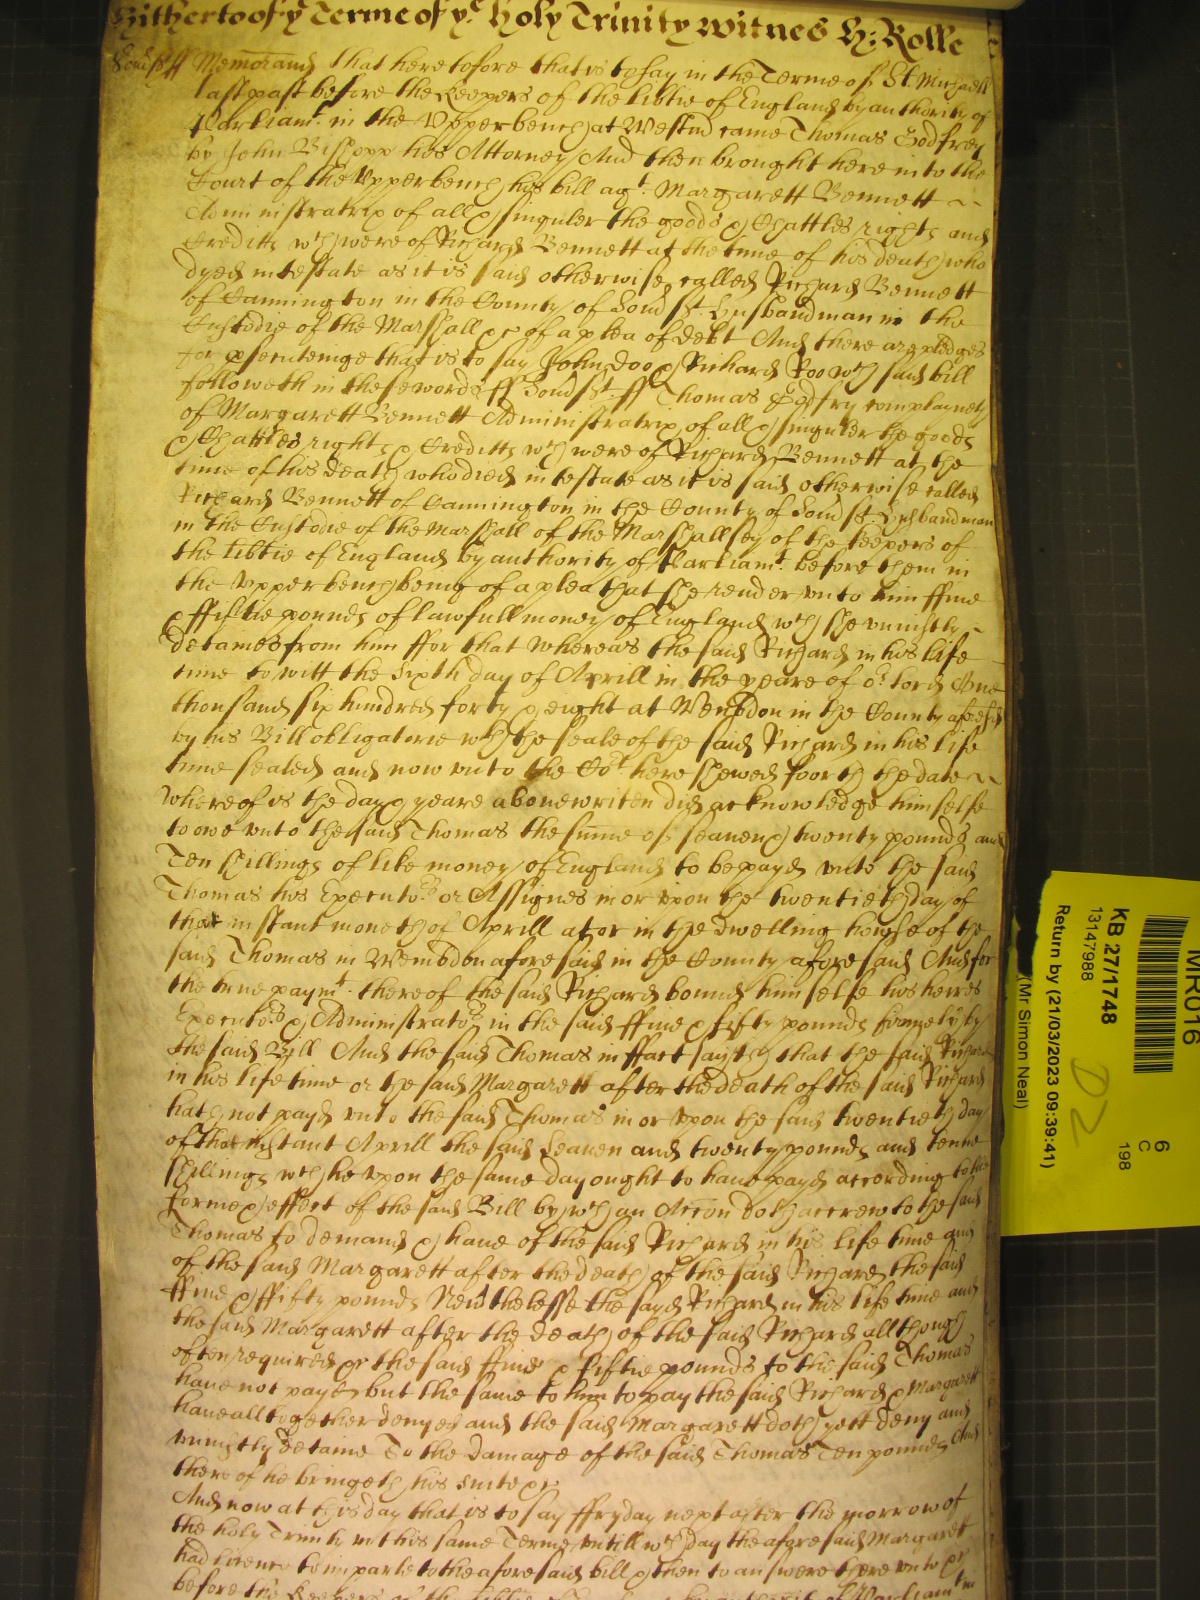 Hitherto of ye Terme of ye Holy Trinity Witnes H: Rolle
Somst ff Memorand that heretofore that is to say in the Terme of St Michaell
last past before the Keepers of the libtie of England by authority of
Parliamt. in the Vpper bench at Westmr came Thomas Godfrey
by John Bishopp his Attorney And then brought here into the
Court of the Vpper bench his bill agt. Margarett Bennett
Administratrix of all & singuler the goods & Chattles rights and
Creditts wch were of Richard Bennett at the time of his death who
dyed intestate as it is said otherwise called Richard Bennett
of Cannington in the County of Somst. husbandman in the
Custodie of the Marshall &c of a plea of debt And there are pledges
for psecuteinge that is to say John Doo & Richard Roo wch said bill
followeth in these words ff Somst. ff Thomas Godfry complayneth
of Margarett Bennett Administratrix of all & singuler the goods
& Chattles rights & Creditts wch were of Richard Bennett at the
time of his death who died intestate as it is said otherwise called
Richard Bennett of Cannington in the County of Somst. husbandman
in the Custodie of the Marshall of the Marshallsey of the keepers of
the libtie of England by authority of Parliamt. before them in
the Vpper bench being of a plea that she render vnto him ffiue
& ffiftie pounds of lawfull money of England wch she vniustly
detaines from him ffor that whereas the said Richard in his life
time to witt the sixth day of Aprill in the yeare of or lord One
thousand six hundred forty & eight at Wembdon in the County aforesd
by his Bill obligatorie wth the seale of the said Richard in his life
time sealed and now vnto the Cort here shewed foorth the date
whereof is the day & yeare aboue writen did acknowledge himselfe
to owe vnto the said Thomas the sume of seauen & twenty pounds and
Ten shillings of like money of England to be payd vnto the said
Thomas his Executors or Assignes in or vpon the twentieth day of
that instant moneth of Aprill at or in the dwelling howse of the
said Thomas in Wembdon aforesaid in the County aforesaid And for
the true paymt. thereof the said Richard bound himselfe his heires
Executors & Administrators in the said ffiue & fifty pounds by
the said Bill And the said Thomas in ffact sayth that the said Richard
in his life time or the said Margarett after the death of the said Richard
hath not payd vnto the said Thomas in or vpon the said twentieth day
of that instant Aprill the said seauen and twenty pounds and tenne
shillings wch he vpon the same day ought to haue payd according to the
forme & effect of the said Bill by wch an Accon doth accrew to the said
Thomas to demand & haue of the said Richard in his life time and
of the said Margarett after the death of the said Richard the said
ffiue & ffifty pounds Neuthelesse the sayd Richard in his life time and
the said Margarett after the death of the said Richard although
often required &c the said ffiue & fiftie pounds to the said Thomas
haue not payd but the same to him to pay the said Richard & Margarett
haue alltogether denyed and the said Margarett doth yett deny and
vniustly detaine To the damage of the said Thomas Ten pounds And
thereof he bringeth his suite &c
And now at this day that is to say ffryday next after the morrow of
the holy Trinity in this same Terme vntill wch day the aforesaid Margarett
had licence to imparle to the aforesaid bill & then to answere there vnto &c
before the Keepers of the libtie of England by authoritie of Parliamt in
MR016
KB 27/1748
13147988
6
C
198
D2
Return by (21/03/2023 09:39:41)
(Mr Simon Neal)